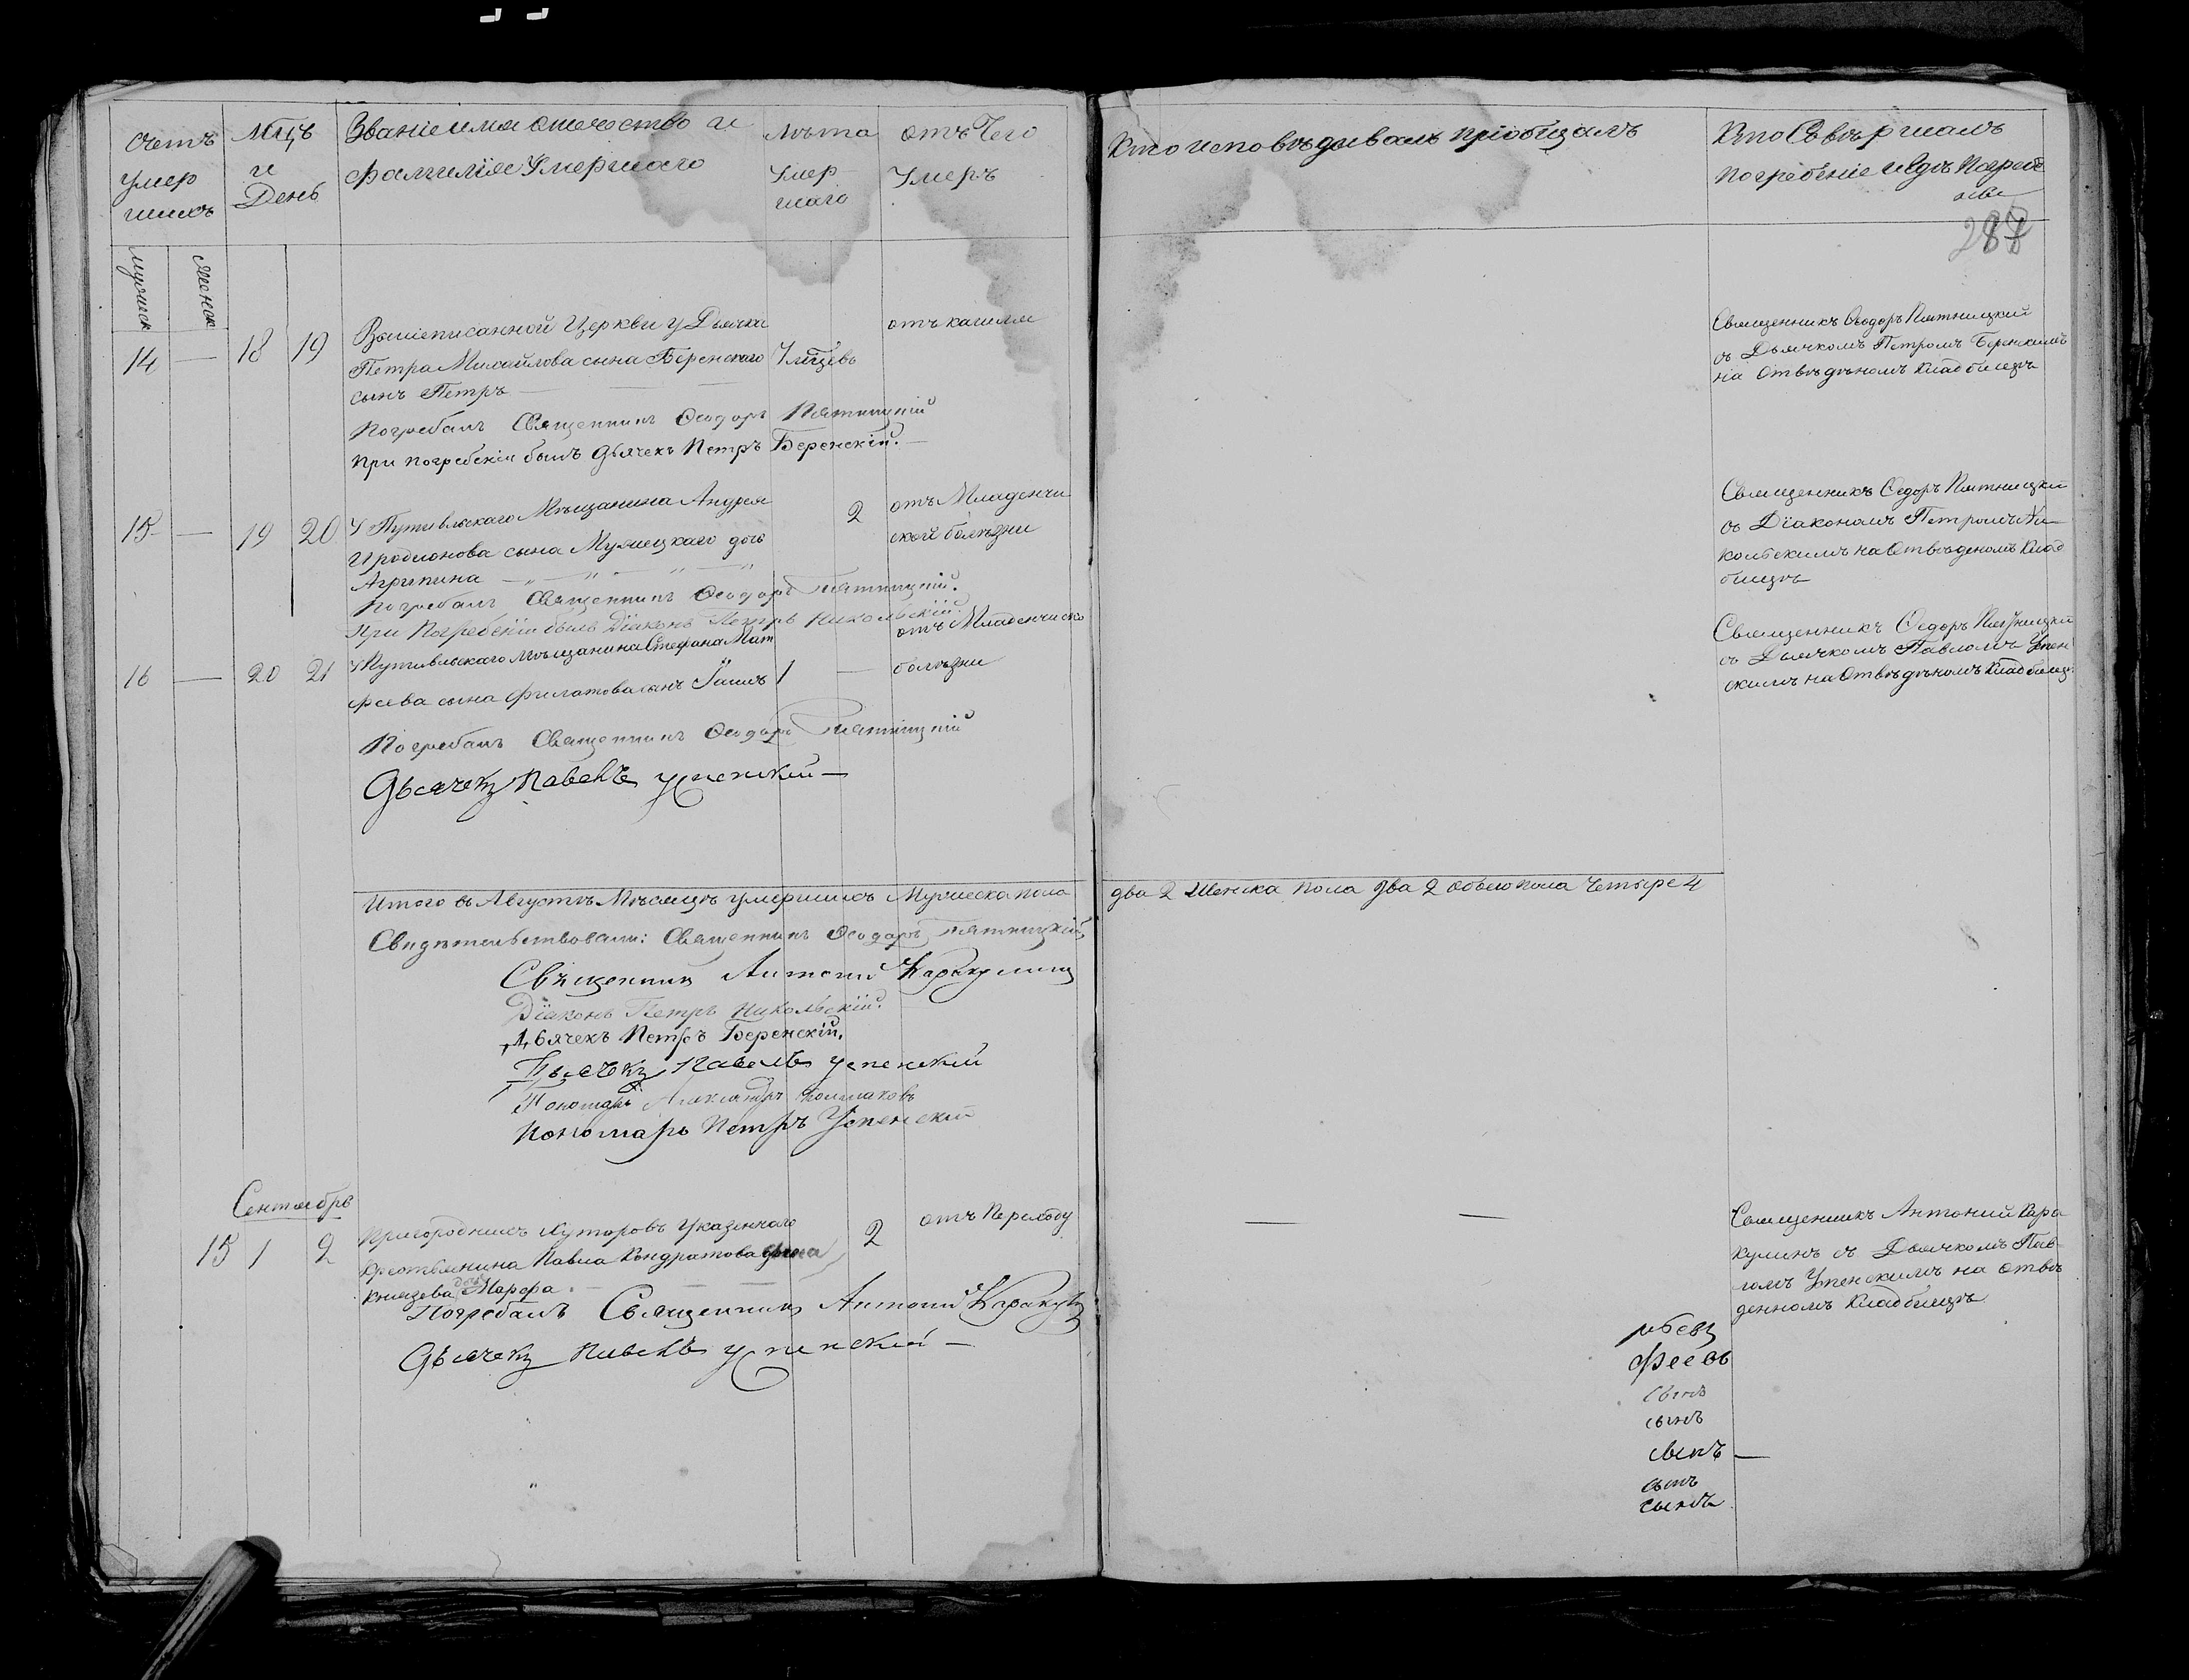 Счетъ умер шихъ
Мцъ и День
Званіе имя отечество и
фамилія Умершаго
лѣта Умер шаго
отъ Чего Умеръ
Кто исповѣдывалъ и пріобщалъ
Кто Совершалъ
погребеніе и гдѣ Погреб
мужеск
женск
14 — 18 19
Вышеписанной Церкви у Дьячка
Петра Михайлова сына Беренскаго
сынъ Петръ
отъ кашля
Погребалъ Священникъ Ѳеодоръ Пятницкій
При погребеніи былъ дьячекъ Петръ Беренскій.
Священникъ Ѳеодоръ Пятницкій
съ Дьячкомъ Петромъ Беренскимъ
на Отведеномъ Кладбищѣ
15 — 19 20
У Путивльскаго Мѣщанина Андрея
Иродионова сына
Агрипина
2
отъ Младенчи
ской болѣзни
Погребалъ Священникъ Ѳеодоръ Пятницкій.
При Погребеніи былъ Діаконъ Петръ Никольскій.
Священникъ Ѳедоръ Пятницкій
съ Діакономъ Петромъ Ни
кольскимъ на Отведеномъ Клад
бищѣ
16 — 20 21
У Путивльскаго мѣщанина Стефана Мат
феева сына Филатова сынъ
1 —
отъ Младенчиско
болѣзни
Погребалъ Священникъ Ѳеодоръ Пятницкій
Дьячекъ Павелъ Успенский
Священникъ Ѳедоръ Пятницкій
съ Дьячкомъ Павломъ Успен
скимъ на Отведѣномъ Кладбищѣ
Итого въ Августѣ Мѣсяцѣ умершихъ Мужеска пола
два 2 Женска пола два 2 обоего пола Четыре 4
Свидѣтельствовали: Священникъ Ѳеодоръ Пятницкій
Священникъ Антоній Каракулинъ
Діаконъ Петръ Никольскій.
Дьячекъ Петръ Беренскій.
Дьячекъ Павелъ Успенский
Пономарь Александръ
Пономарь Петръ Успенский
Сентябрь
15 1 2
Пригороднихъ Хуторовъ
крестьянина Павла Кондратова
Князева дочь Марѳа
2
Погребалъ Священникъ Антоній Каракулинъ
Дьячекъ Павелъ Успенский
— —
Священникъ Антоний Кара
кулинъ съ Дьячкомъ Пав
ломъ Успенскимъ на отве
денномъ Кладбищѣ
феевъ
сынъ
сынъ
сынъ
сынъ
сынъ